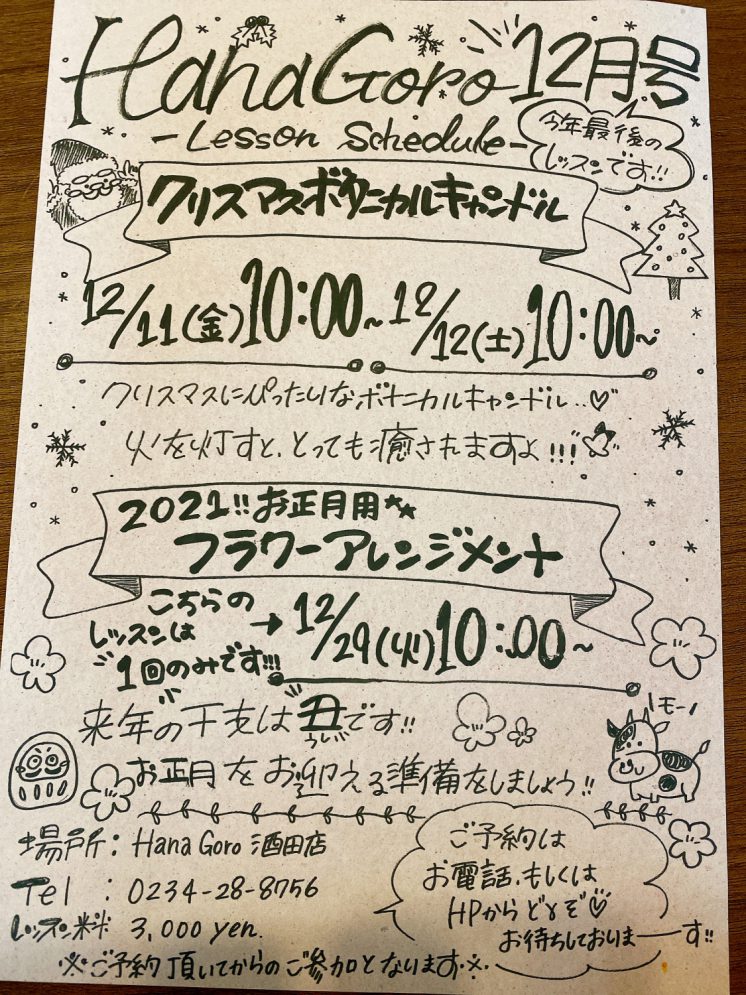 HanaGoro 12月号
-Lesson Schedule-
今年最後の
レッスンです!!
クリスマスボタニカルキャンドル
12/11(金)10:00~ 12/12(土)10:00~
クリスマスにぴったりなボタニカルキャンドル..♡
火を灯すと、とっても癒されますよ!!!
2021!!お正月用★★
フラワーアレンジメント
こちらの
レッスンは
1回のみです!!!
→ 12/29(火)10:00~
来年の干支は丑です!!
うし
モー
お正月をお迎える準備をしましょう!!
場所:Hana Goro 酒田店
Tel : 0234-28-8756
レッスン料 3,000 yen.
※ご予約頂いてからのご参加となります.※
ご予約は
お電話、もしくは
HPからどうぞ♡
お待ちしておりまーす!!